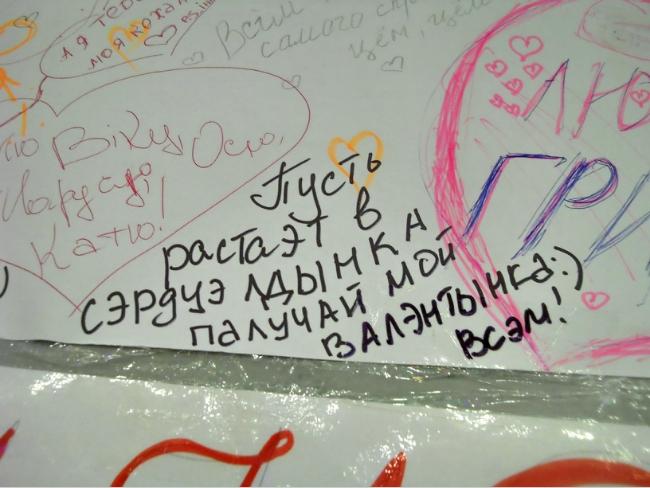 моя коха
Всім
самого
цём, цём
Віку, Осю,
Марусю,
Катю!
Пусть
растаэт в
сэрдцэ лдынка
палучай мой
валэнтынка:)
всэм!
ЛЮ
ГРИ